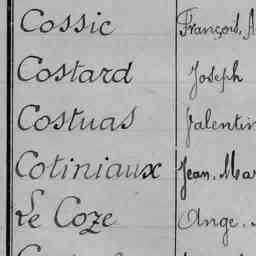 Cossic François, A
Costard Joseph
Costuas Valentin
Cotiniaux Jean. Mar
Le Coze Ange.